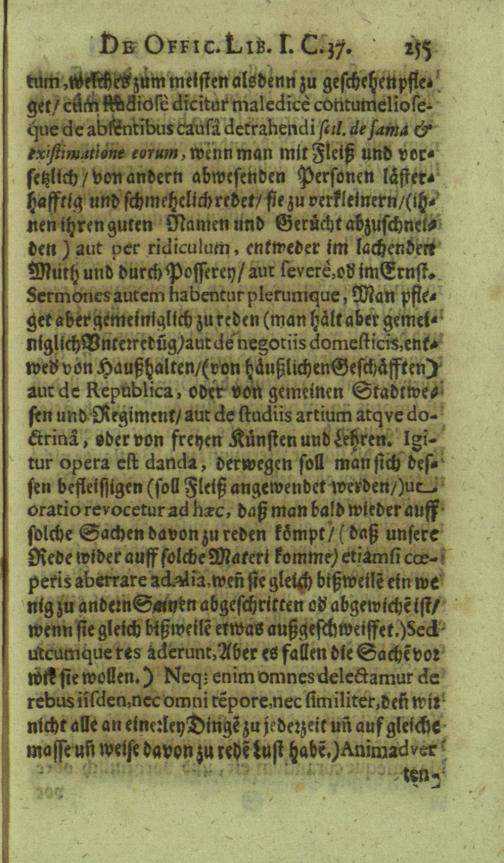 DE OFFIC. LIB. I. C. 37. 255
tum, welches zum meisten alsdenn zu geschehen pfle-
get/ cùm studiosè dicitur maledicè contumeliose-
que de absentibus causâ detrahendi scil. de fama &
existimatione eorum, wenn man mit Fleiß und vor-
setzlich/ von andern abwesenden Personen läster-
hafftig und schmehelich redet/ sie zu verkleinern/(ih-
nen ihren guten Namen und Gerücht abzuschnei-
den) aut per ridiculum, entweder im lachenden
Muth und durch Posserey/ aut severè, od im Ernst.
Sermones autem habentur plerumque, Man pfle-
get aber gemeiniglich zu reden (man hält aber gemei-
niglich Vnterredūg) aut de negotiis domesticis, ent-
wed von Haußhalten/(von häußlichen Geschäfften)
aut de Republica, oder von gemeinen Stadtwe-
sen und Regiment/ aut de studiis artium atqve do-
ctrinâ, oder von freyen Künsten und Lehren. Igi-
tur opera est danda, derwegen soll man sich des-
sen befleissigen (soll Fleiß angewendet werden/) ut
oratio revocetur ad hæc, daß man bald wieder auff
solche Sachen davon zu reden kömpt/ (daß unsere
Rede wider auff solche Materi komme) etiamsi cœ-
peris aberrare ad alia, weñ sie gleich bißweilē ein we
nig zu andern Saiten abgeschritten od abgewichē ist/
wenn sie gleich bißweilē etwas außgeschweiffet.) Sed
utcumque res aderunt, Aber es fallen die Sachē vor
wie sie wollen.) Neq; enim omnes delectamur de
rebus iisden, nec omni tēpore, nec similiter, deñ wir
nicht alle an einerley Dingē zu jederzeit uñ auf gleiche
masse uñ weise davon zu redē Lust habē.) Animadver
ten-